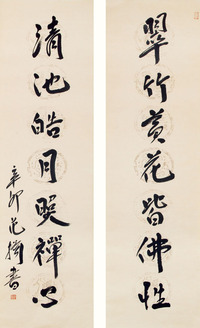 翠竹黄花皆佛性
清池皓月照禪心
辛卯范揚書